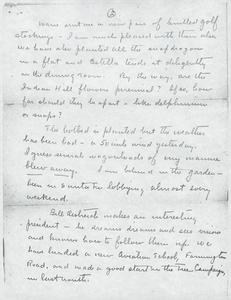 (2)
Ware sent me a new pair of knitted golf
stockings - I am much pleased with them also
we have also planted all the snapdragon
in a flat and Estella tends it diligently
in the dining room. By the way, are the
Indian Hill flowers perennial? If so, how
far should they be apart - like delphinium
or snaps?
The hotbed is planted but the weather
has been bad - a 50 mile wind yesterday.
I guess several wagonloads of my manure
blew away. I am behind in the garden -
been in lobbying almost every
weekend.
Bill makes an interesting
president - he dreams dreams and sees visions
and knows how to follow them up. We
have landed a new Aviation School, Farmington
Road, and made a good start in the Tree Campaign
in